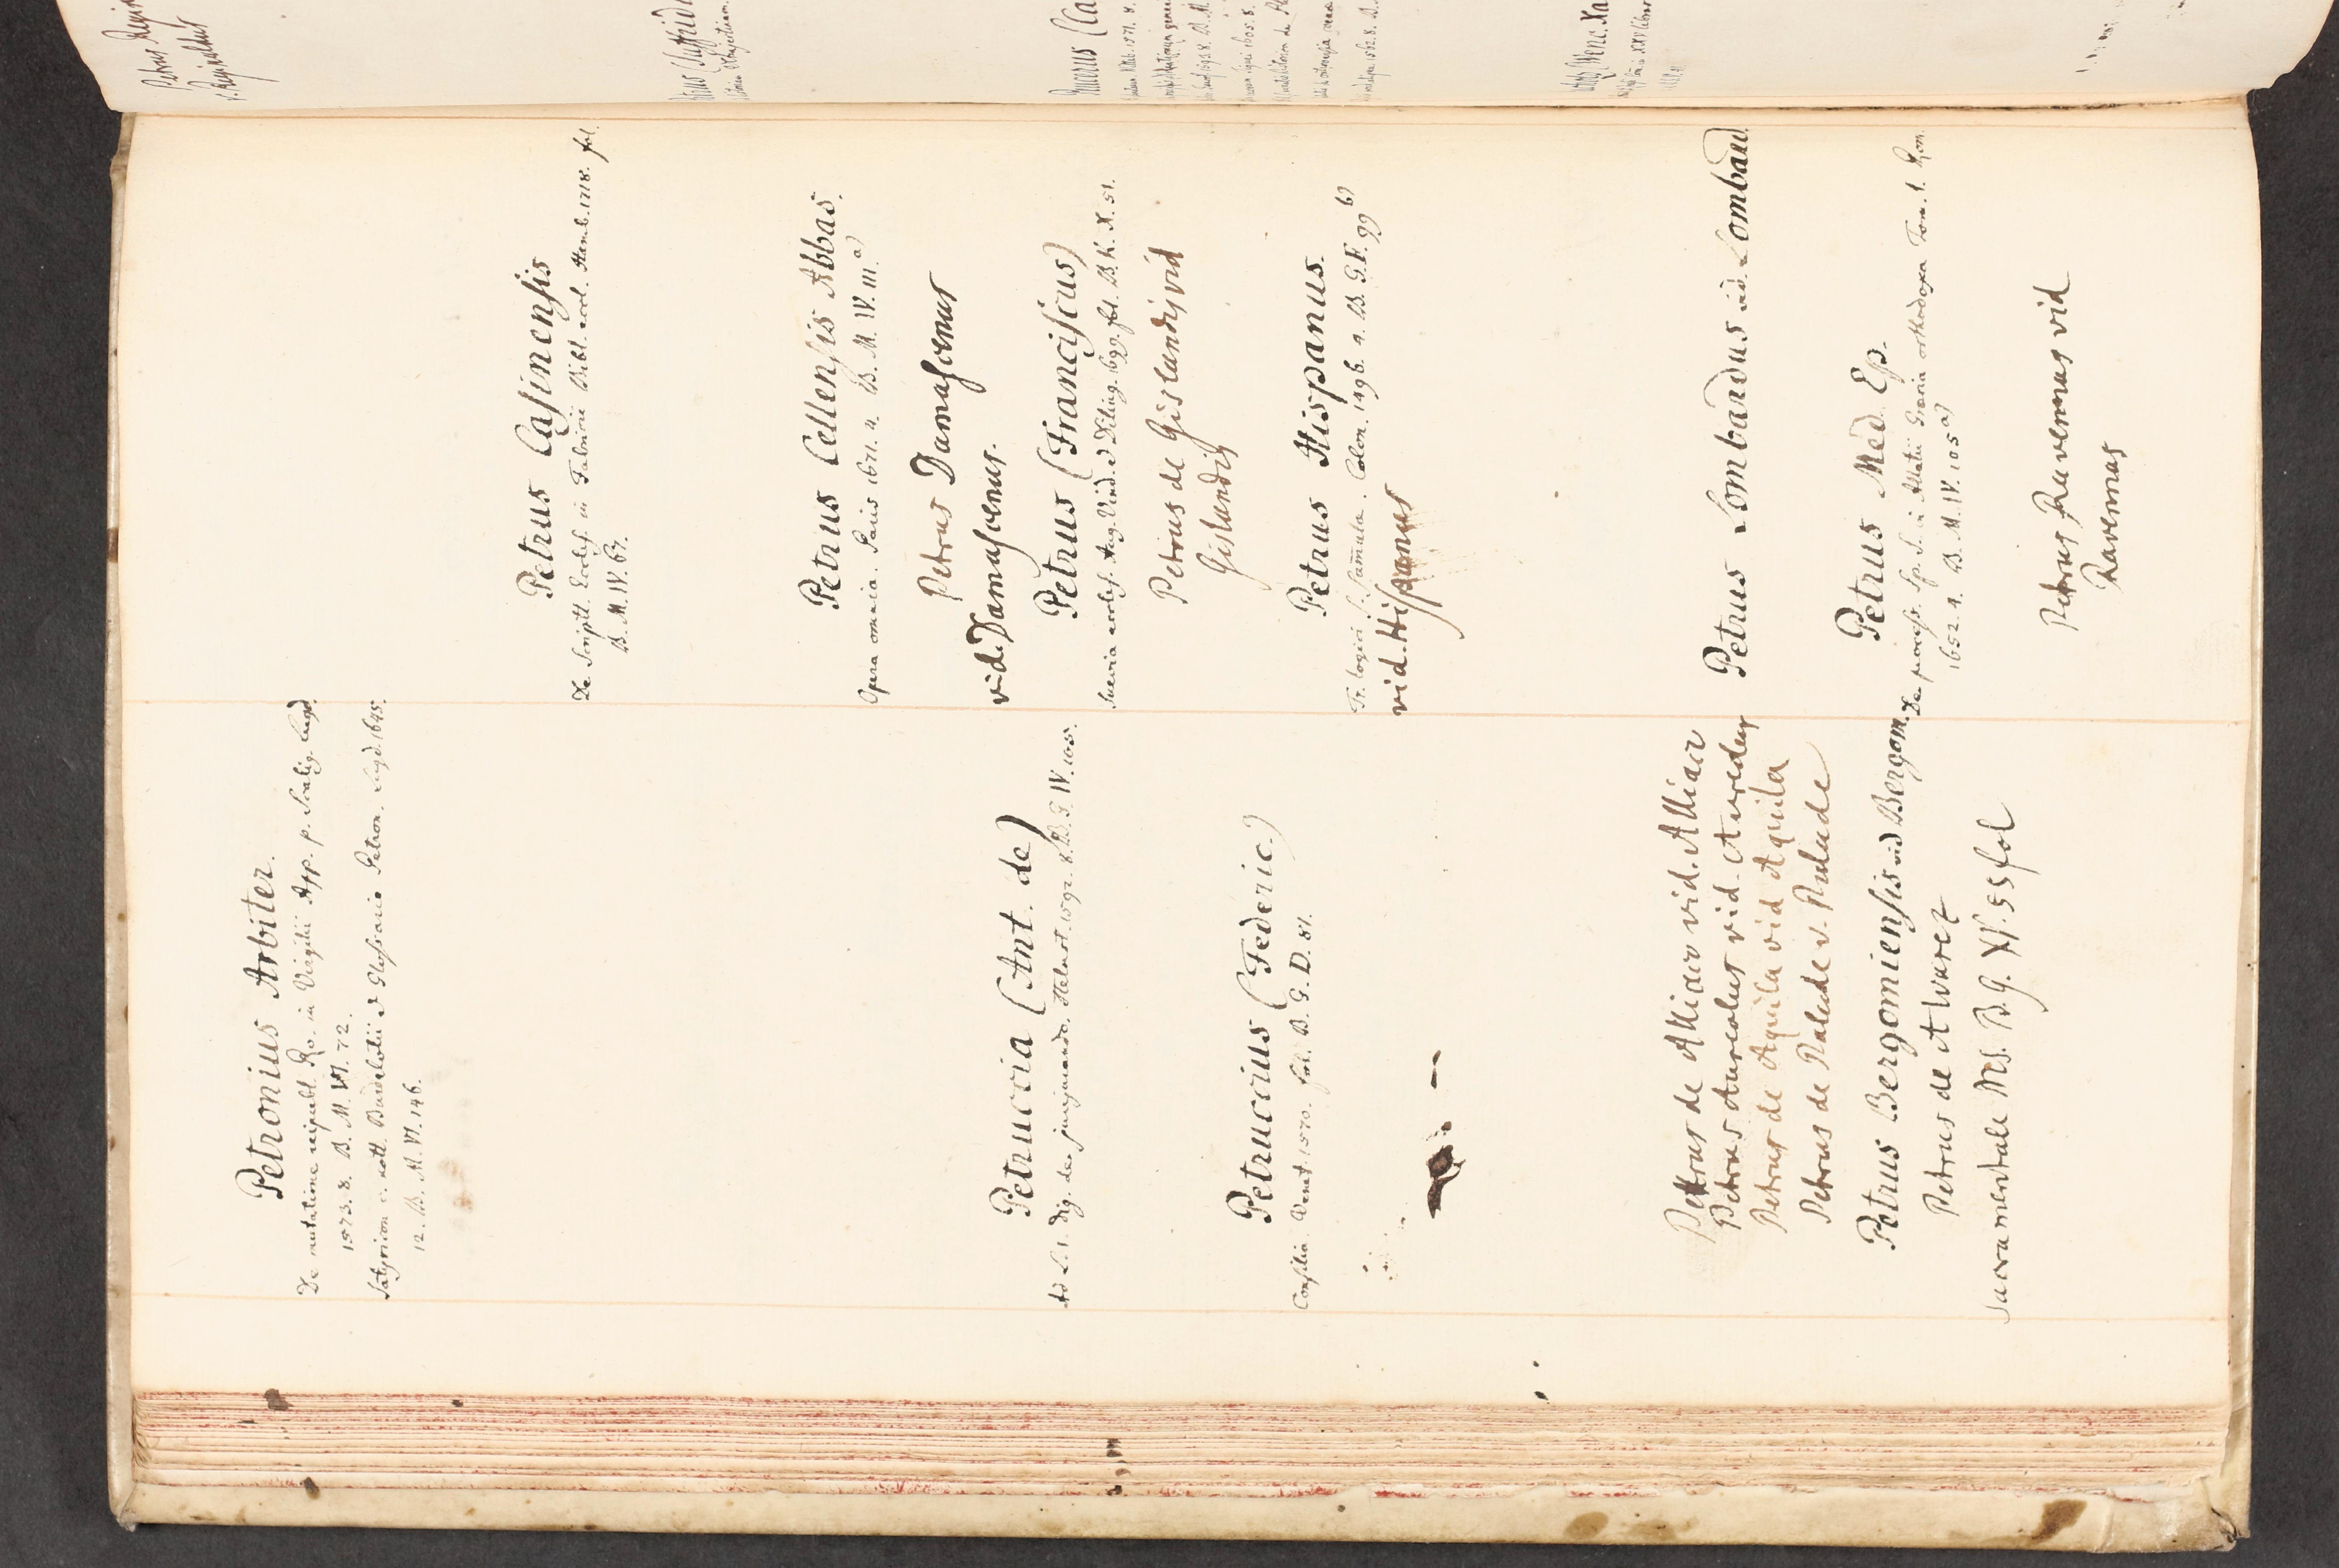 Petronius Arbiter.
De mutatione reipubl. Ro. in Virgilii App. p. Scalig. Lugd
1573. 8. B. M. VI. 72.
Satyricon c. nott. Burdelotii & Glossario Petron. Lugd. 1645.
12. B. M. VI. 146.
Petruccia (Ant. de)
Ad L. 1. dig. de jurejurando. 1592. 8. B. G. IV. 105.
Petruccius (Federic)
Consilia Venet 1570. fol. B. G. D. 81.
Petrus de Alliaco vid. Alliac
Petrus Aureolus vid. Aureolus
Petrus de Aquila vid Aquila
Petrus de Palude v. Palude
Petrus Bergomensis vid Bergom.
Petrus de Alvarez
Sacramentale MS. B. G. XV. 55 fol
Petrus Casinensis
De Scriptt. Eccles. in Fabricii Bibl. eccl. Hamb. 1718. fol.
B. M. IV. 67.
Petrus Cellensis Abbas.
Opera omnia. Paris 1671. 4. B. M. IV. 111. a)
Petrus Damascenus
vid. Damascenus.
Petrus (Franciscus)
Suevia eccles. Aug. Vind. & Diling. 1699. fol. B. K. X. 51.
Petrus de Gislandis vid
Gislandis
Petrus Hispanus.
Tr. logici s. Summula. Colon. 1496. 4. B. G. F. 99 b)
vid. Hispanus
Petrus Lombardus vid. Lombard.
Petrus Med. Ep.
De process. Sp. S. in Allatii Graecia orthodoxa Tom. 1. Rom.
1652. 4. B. M. IV. 105 a)
Petrus Ravennas vid
Ravennas